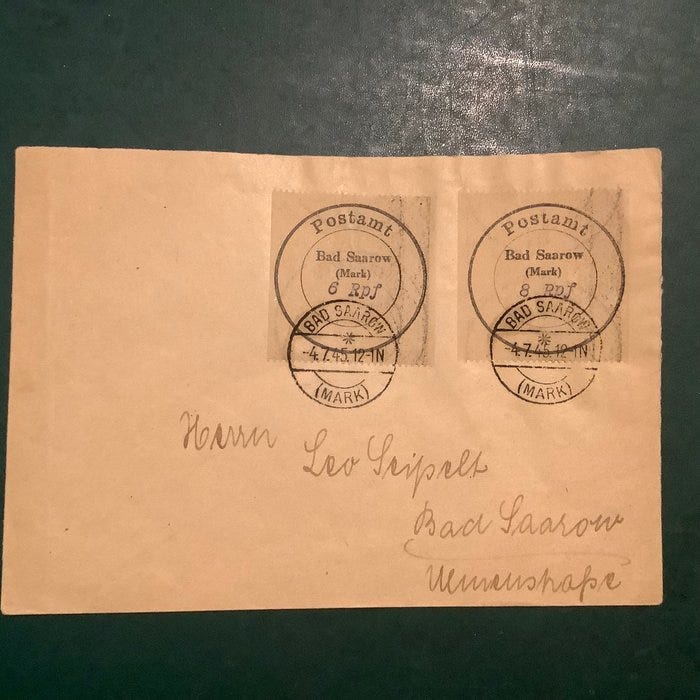 Postamt
Bad Saarow
(Mark)
6 Rpf
BAD SAAROW
-4.7.45.12-1N
(MARK)
Postamt
Bad Saarow
(Mark)
8 Rpf
BAD SAAROW
-4.7.45.12-1N
(MARK)
Herrn Leo Seipelt
Bad Saarow
Ulmenstraße